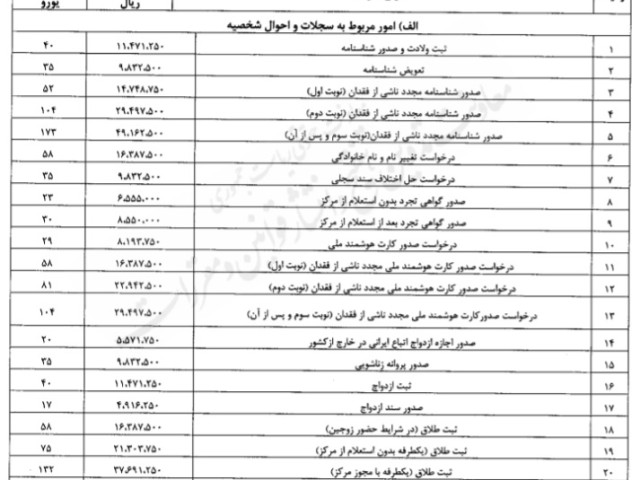 ریال یورو
الف) امور مربوط به سجلات و احوال شخصیه
۱ ثبت ولادت و صدور شناسنامه ۱۱.۴۷۱.۲۵۰ ۴۰
۲ تعویض شناسنامه ۹.۸۳۲.۵۰۰ ۳۵
۳ صدور شناسنامه مجدد ناشی از فقدان (نوبت اول) ۱۴.۷۴۸.۷۵۰ ۵۲
۴ صدور شناسنامه مجدد ناشی از فقدان (نوبت دوم) ۲۹.۴۹۷.۵۰۰ ۱۰۴
۵ صدور شناسنامه مجدد ناشی از فقدان(نوبت سوم و پس از آن) ۴۹.۱۶۲.۵۰۰ ۱۷۳
۶ درخواست تغییر نام و نام خانوادگی ۱۶.۳۸۷.۵۰۰ ۵۸
۷ درخواست حل اختلاف سند سجلی ۹.۸۳۲.۵۰۰ ۳۵
۸ صدور گواهی تجرد بدون استعلام از مرکز ۶.۵۵۵.۰۰۰ ۲۳
۹ صدور گواهی تجرد بعد از استعلام از مرکز ۸.۵۵۰.۰۰۰ ۳۰
۱۰ درخواست صدور کارت هوشمند ملی ۸.۱۹۳.۷۵۰ ۲۹
۱۱ درخواست صدور کارت هوشمند ملی مجدد ناشی از فقدان (نوبت اول) ۱۶.۳۸۷.۵۰۰ ۵۸
۱۲ درخواست صدور کارت هوشمند ملی مجدد ناشی از فقدان (نوبت دوم) ۲۲.۹۴۲.۵۰۰ ۸۱
۱۳ درخواست صدورکارت هوشمند ملی مجدد ناشی از فقدان (نوبت سوم و پس از آن) ۲۹.۴۹۷.۵۰۰ ۱۰۴
۱۴ صدور اجازه ازدواج اتباع ایرانی در خارج ازکشور ۵.۵۷۱.۷۵۰ ۲۰
۱۵ صدور پروانه زناشویی ۹.۸۳۲.۵۰۰ ۳۵
۱۶ ثبت ازدواج ۱۱.۴۷۱.۲۵۰ ۴۰
۱۷ صدور سند ازدواج ۴.۹۱۶.۲۵۰ ۱۷
۱۸ ثبت طلاق (در شرایط حضور زوجین) ۱۶.۳۸۷.۵۰۰ ۵۸
۱۹ ثبت طلاق (یکطرفه بدون استعلام از مرکز) ۲۱.۳۰۳.۷۵۰ ۷۵
۲۰ ثبت طلاق (یکطرفه با مجوز مرکز) ۳۷.۶۹۱.۲۵۰ ۱۳۲